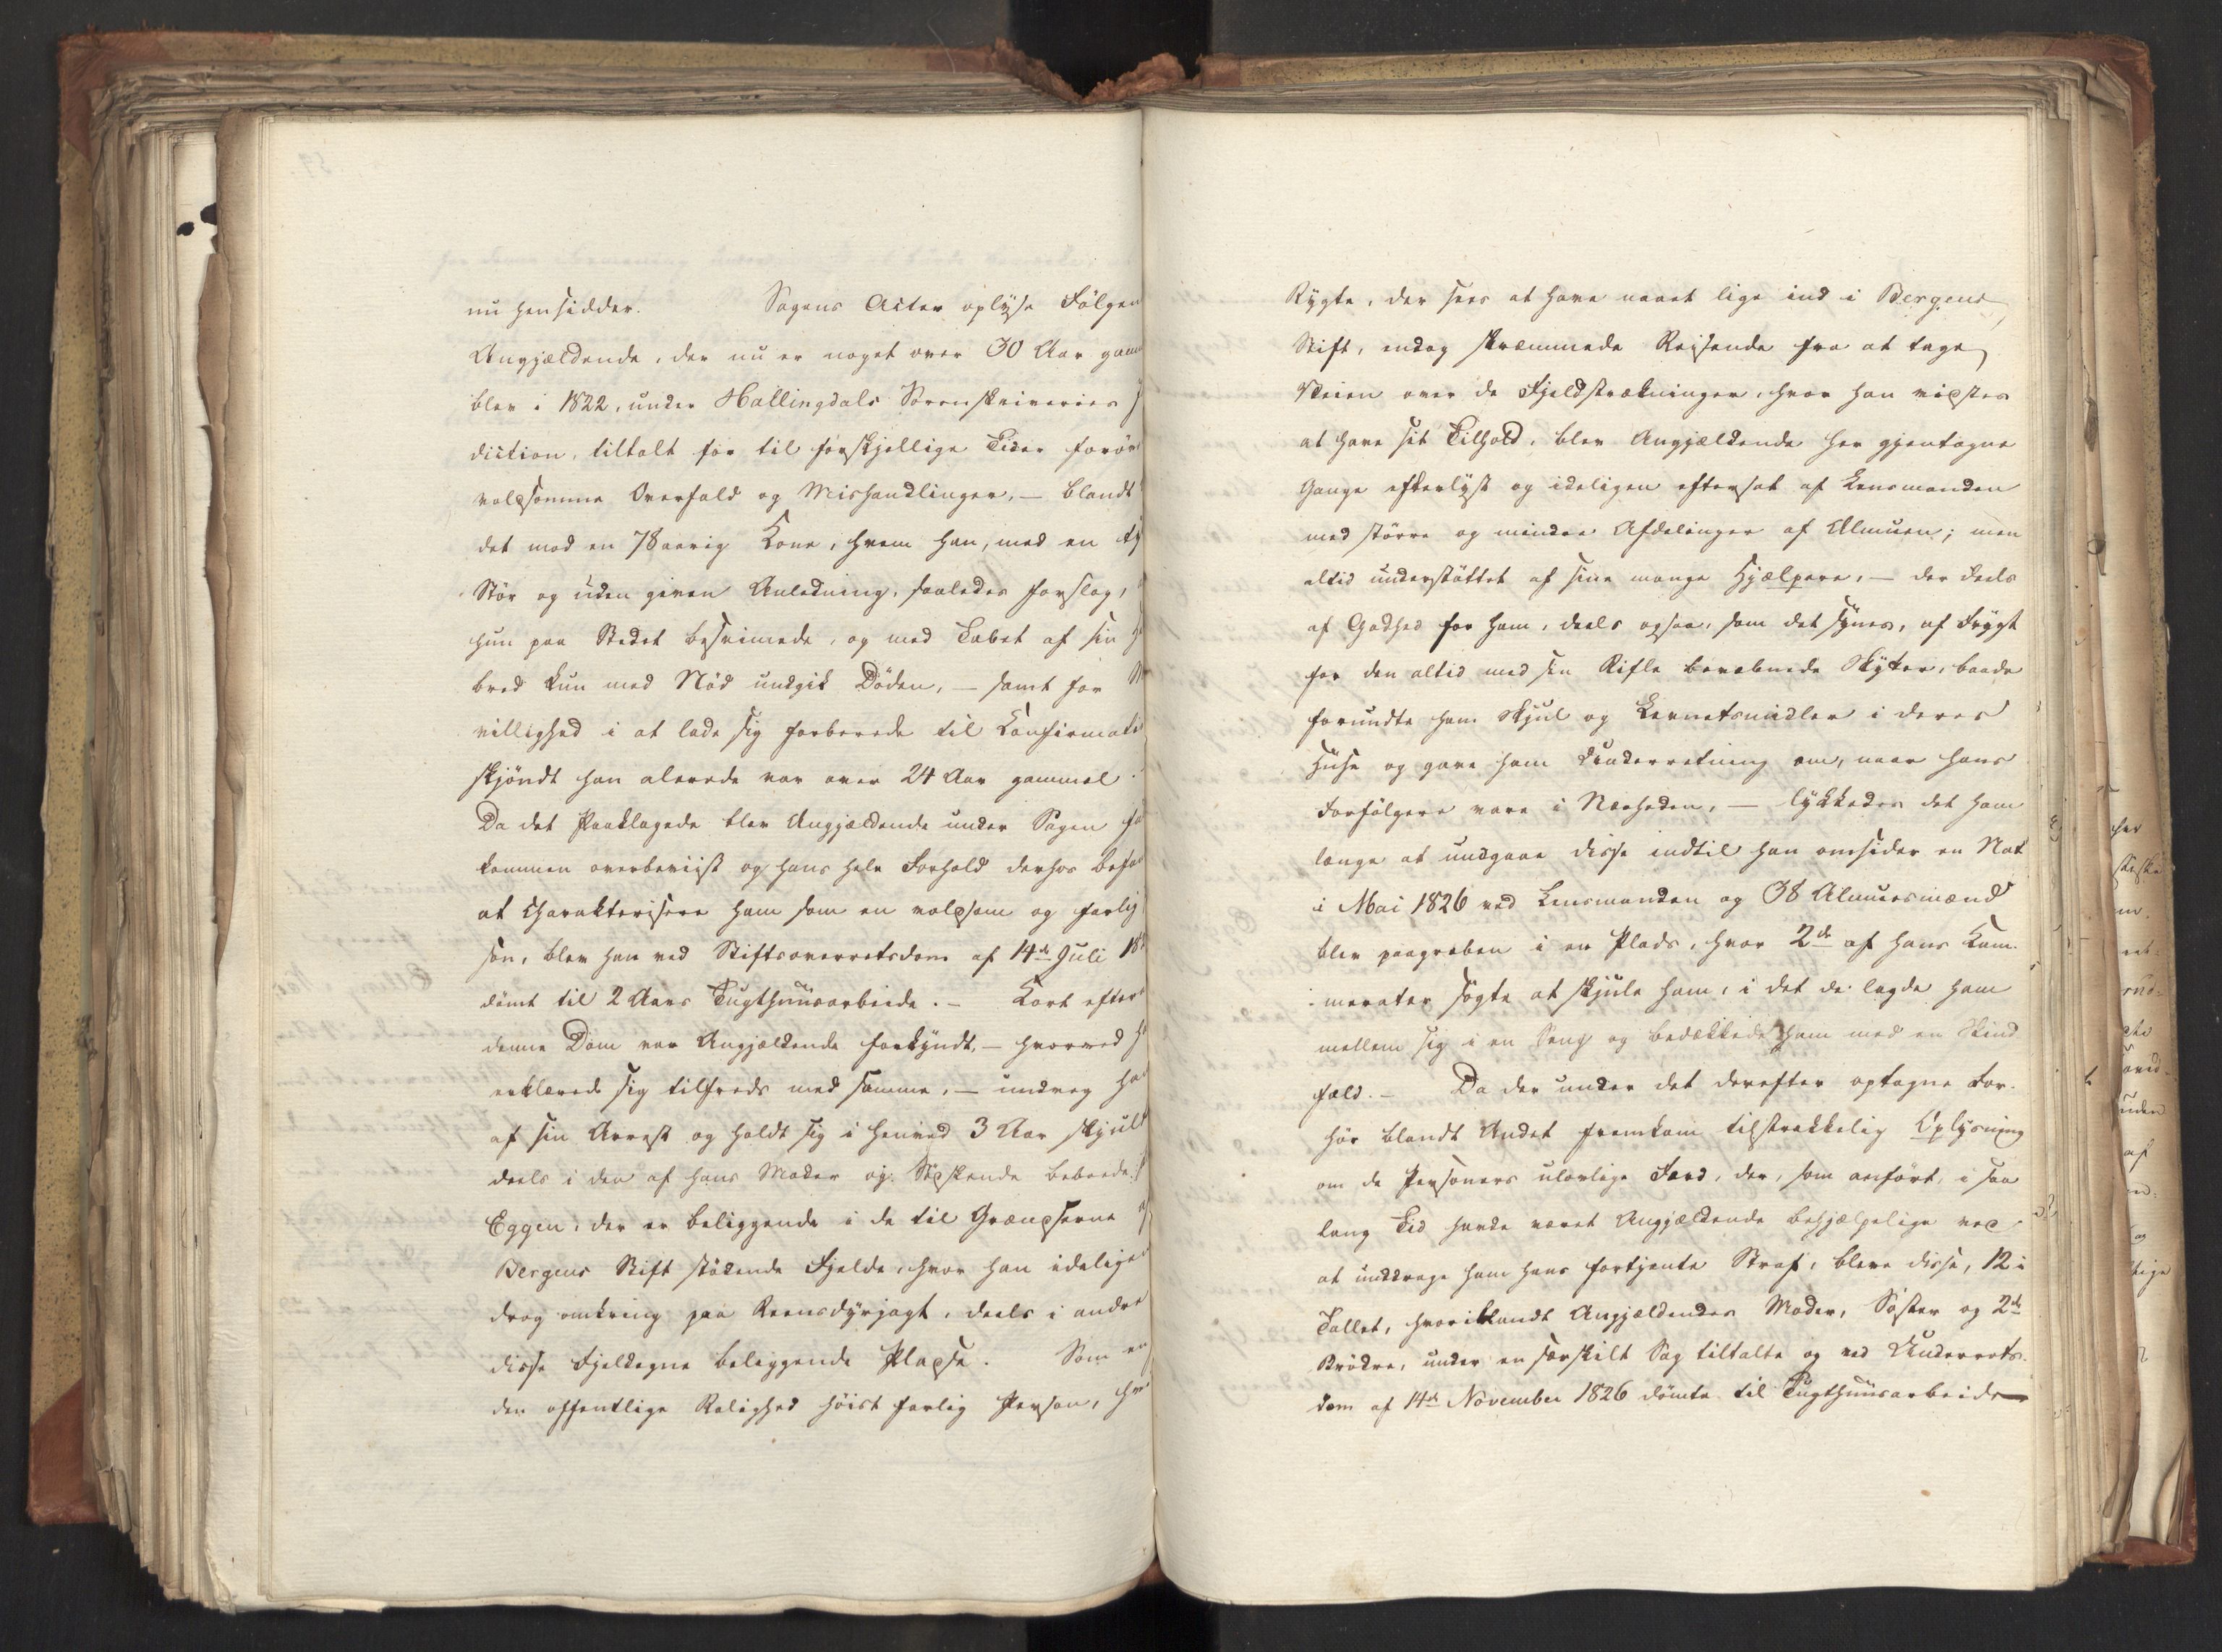 nu hensidder. Sagens Acter oplyse Følgen
Angjældende, der nu er noget over 30 Aar gam
blev i 1822, under Hallingdals Sorenskriveries J
diction, tiltalt for til forskjellige Tider forøv
voldsomme Overfald og Mishandlinger, — blandt
det mod en 78aarig Kone, hvem han, med en ty
Stör og uden given Anledning, saaledes forslog,
hun paa Stedet besvimede, og med Tabet af sin H
bred kun med Nöd undgik Döden, — samt for
villighed i at lade sig forberede til Confirmati
skjöndt han alerede var over 24 Aar gammel.
Da det Paaklagede blev Angjældende under Sagen
kommen overbeviist og hans hele Forhold derhos befa
at charakterisere ham som en voldsom og farlig
son, blev han ved Stiftsoverretsdom af 14de Juli 18
dömt til 2 Aars Tugthuusarbeide. — Kort efter
denne Dom var Angjældende forkyndt, — hvorved h
erklærede sig tilfreds med samme, — undveg ha
af sin Arrest og holdt sig i henved 3 Aar skjult
deels i den af hans Moder og Södskende beboede
Eggen, der er beliggende i de til Grændserne
Bergens Stift stödende Fjelde, hvor han idelige
drog omkring paa Reensdyrjagt, deels i andre
disse Fjeldegne beliggende Pladse. Som en
den offentlige Rolighed höist farlig Person, hvi
Rygte, der sees at have naaet lige ind i Bergens
Stift, endog skræmmede Reisende fra at tage
Veien over de Fjeldstrækninger, hvor han vidstes
at have sit Tilhold, blev Angjældende her gjentagne
Gange efterlyst og ideligen eftersat af Lensmanden
med större og mindre Afdelinger af Almuen; men
altid understöttet af sine mange Hjælpere, — der deels
af Godhed for ham, deels ogsaa, som det synes, af Frygt
for den altid med sin Rifle bevæbnede Skytter, baade
forundte ham Skjul og Levnetsmidler i deres
Huse og gave ham Underretning om, naar hans
Forfölgere vare i Nærheden, — lykkedes det ham
længe at undgaae disse indtil han omsider en Nat
i Mai 1826 ved Lensmanden og 38 Almuesmænd
blev paagreben i en Plads, hvor 2de af hans Kam-
merater sögte at skjule ham, i det de lagde ham
mellem sig i en Seng og bedækkede ham med en Skind
fæld. — Da der under det derefter optagne For-
hör blandt Andet fremkom tilstrækkelig Oplysning
om de Personers ulovlige Færd, der, som anfört, i saa
lang Tid havde været Angjældende behjælpelige ved
at unddrage ham hans fortjente Straf, bleve disse, 12 i
Tallet, hvoriblandt Angjældendes Moder, Söster og 2de
Brödre, under en særskilt Sag tiltalte og ved Underrets-
dom af 14de November 1826 dömte til Tugthuusarbeide